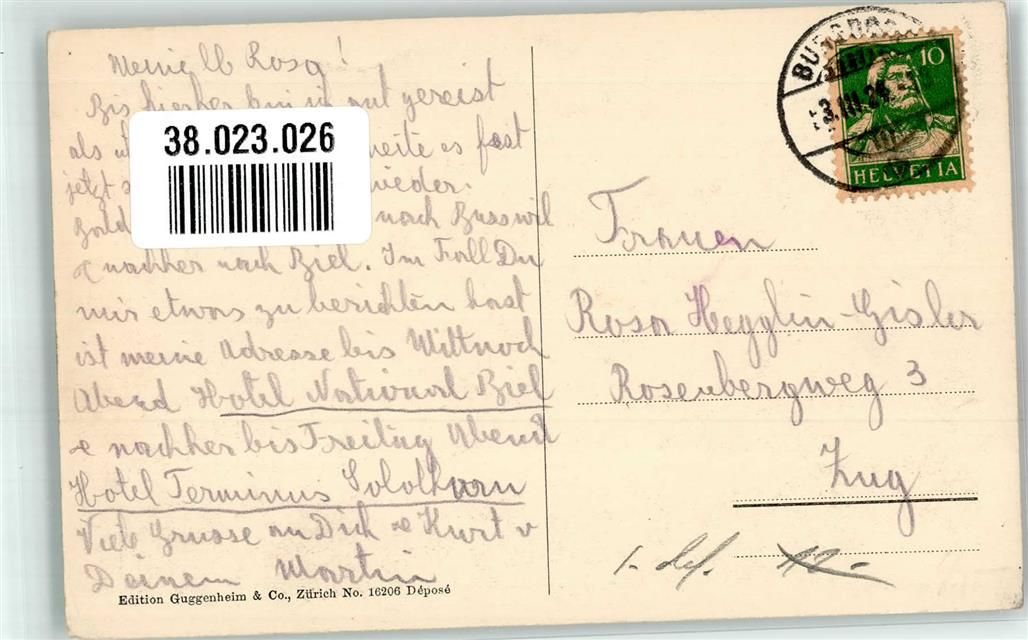 Meine lb Rosa!
Bis hierher bin ich gut gereist
als
38.023.026
weite es fast
jetzt
wieder.
nach Busswil
& nachher nach Biel. Im Fall Du
mir etwas zu berichten hast
ist meine Adresse bis Mittwoch
Abend Hotel National Biel
& nachher bis Freitag Abend
Hotel Terminus Solothurn
Viele Grüsse an Dich & Kurt v
Deinem Martin
Edition Guggenheim & Co., Zürich No. 16206 Déposé
10
HELVETIA
Frauen
Rosa Hegglin-Gisler
Rosenbergweg 3
Zug